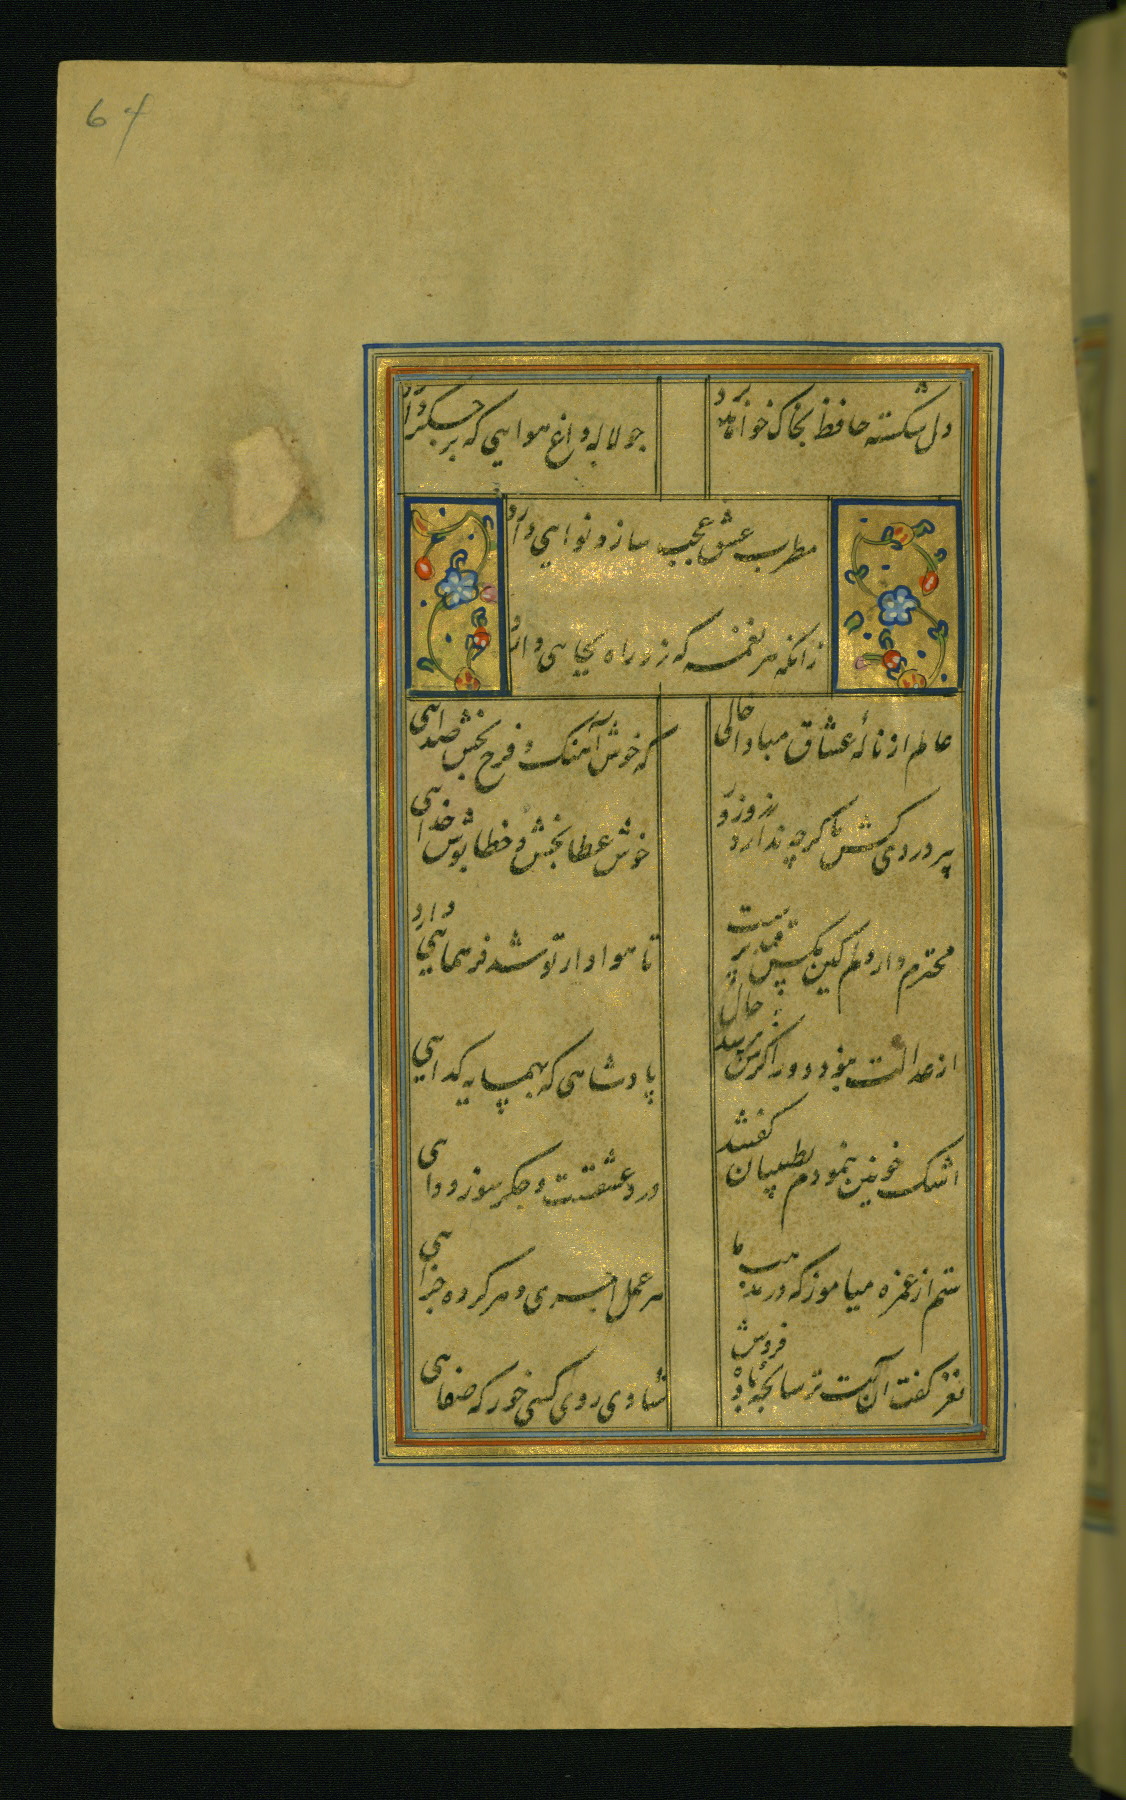 64
دل شکسته حافظ بخاک خواهد برد
چو لاله داغ هوایی که بر جگر دارد
مطرب عشق عجب ساز و نوایی دارد
زانکه هر نغمه که زد راه بجایی دارد
عالم از نالهٔ عشاق مبادا خالی
که خوش آهنک و فرح بخش صدایی
پیر دردی کش ما کرچه ندارد زر و زور
خوش عطا بخش و خطا پوش خدایی
محترم دار دلم کین مکس قند پرست
تا هوادار تو شد فر همایی دارد
از عدالت نبود دور اکرش پرسد حال
پادشاهی که بهمسایه کدایی
اشک خونین بنمودم بطبیبان کفتند
درد عشقست و جکر سوز دوایی
ستم از غمزه میاموز که در مذهب ما
هر عمل اجری و هر کرده جزایی
نغز کفت آن بت ترسا بچهٔ باده فروش
شادی روی کسی خور که صفایی